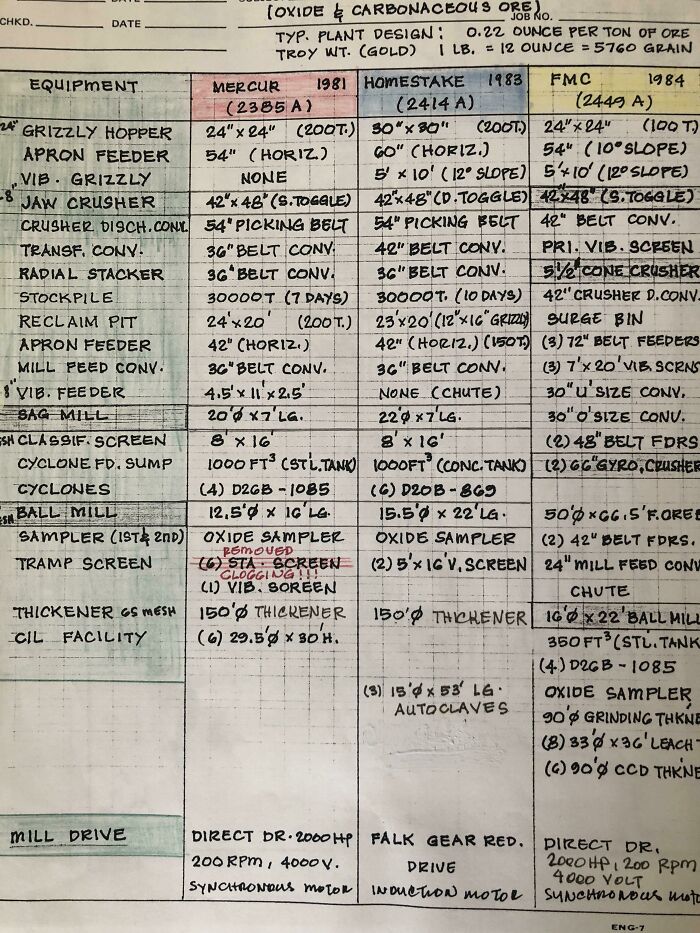 DATE DATE
(OXIDE & CARBONACEOUS ORE)
CHKD. DATE JOB NO.
TYP. PLANT DESIGN: 0.22 OUNCE PER TON OF ORE
TROY WT. (GOLD) 1 LB. = 12 OUNCE = 5760 GRAIN
EQUIPMENT MERCUR 1981 HOMESTAKE 1983 FMC 1984
(2385 A) (2414 A) (2449 A)
24" GRIZZLY HOPPER 24"x24" (200T.) 30"x30" (200T.) 24"x24" (100T)
APRON FEEDER 54" (HORIZ.) 60" (HORIZ.) 54" (10° SLOPE)
VIB. GRIZZLY NONE 5'x10' (12° SLOPE) 5'x10' (12° SLOPE)
8" JAW CRUSHER 42"x48" (S.TOGGLE) 42"x48" (D.TOGGLE) 42"x48" (S.TOGGLE)
CRUSHER DISCH.CONV. 54" PICKING BELT 54" PICKING BELT 42" BELT CONV.
TRANSF. CONV. 36" BELT CONV. 42" BELT CONV. PRI. VIB. SCREEN
RADIAL STACKER 36" BELT CONV. 36" BELT CONV. 5 1/2' CONE CRUSHER
STOCKPILE 30000T (7 DAYS) 30000T. (10 DAYS) 42" CRUSHER D.CONV.
RECLAIM PIT 24'x20' (200T.) 23'x20' (12"x16" GRIZZLY) SURGE BIN
APRON FEEDER 42" (HORIZ.) 42" (HORIZ.) (150T.) (3) 72" BELT FEEDERS
MILL FEED CONV. 36" BELT CONV. 36" BELT CONV. (3) 7'x20' VIB. SCRNS
8" VIB. FEEDER 4.5'x11'x2.5' NONE (CHUTE) 30" U'SIZE CONV.
SAG MILL 20'Ø x 7' LG. 22'Ø x 7' LG. 30" O'SIZE CONV.
CLASSIF. SCREEN 8' x 16' 8' x 16' (2) 48" BELT FDRS
CYCLONE FD. SUMP 1000 FT³ (STL.TANK) 1000 FT³ (CONC.TANK) (2) 66" GYRO. CRUSHER
CYCLONES (4) D26B-1085 (6) D20B-869
BALL MILL 12.5'Ø x 16' LG. 15.5'Ø x 22' LG. 50'Ø x 66.5' F.ORE
SAMPLER (1ST & 2ND) OXIDE SAMPLER OXIDE SAMPLER (2) 42" BELT FDRS.
REMOVED
TRAMP SCREEN (6) STA. SCREEN (2) 5'x16' V. SCREEN 24" MILL FEED CONV
CLOGGING!!!
(1) VIB. SCREEN CHUTE
THICKENER 65 MESH 150'Ø THICKENER 150'Ø THICKENER 16'Ø x 22' BALL MILL
CIL FACILITY (6) 29.5'Ø x 30'H. 350 FT³ (STL. TANK
(4) D26B-1085
(3) 15'Ø x 53' LG. OXIDE SAMPLER
AUTOCLAVES 90'Ø GRINDING THKNE
(8) 33'Ø x 36' LEACH
(6) 90'Ø CCD THKNE
MILL DRIVE DIRECT DR. 2000 HP FALK GEAR RED. DIRECT DR.
200 RPM, 4000 V. DRIVE 2000 HP, 200 RPM
4000 VOLT
SYNCHRONOUS MOTOR INDUCTION MOTOR SYNCHRONOUS MOTO
ENG-7